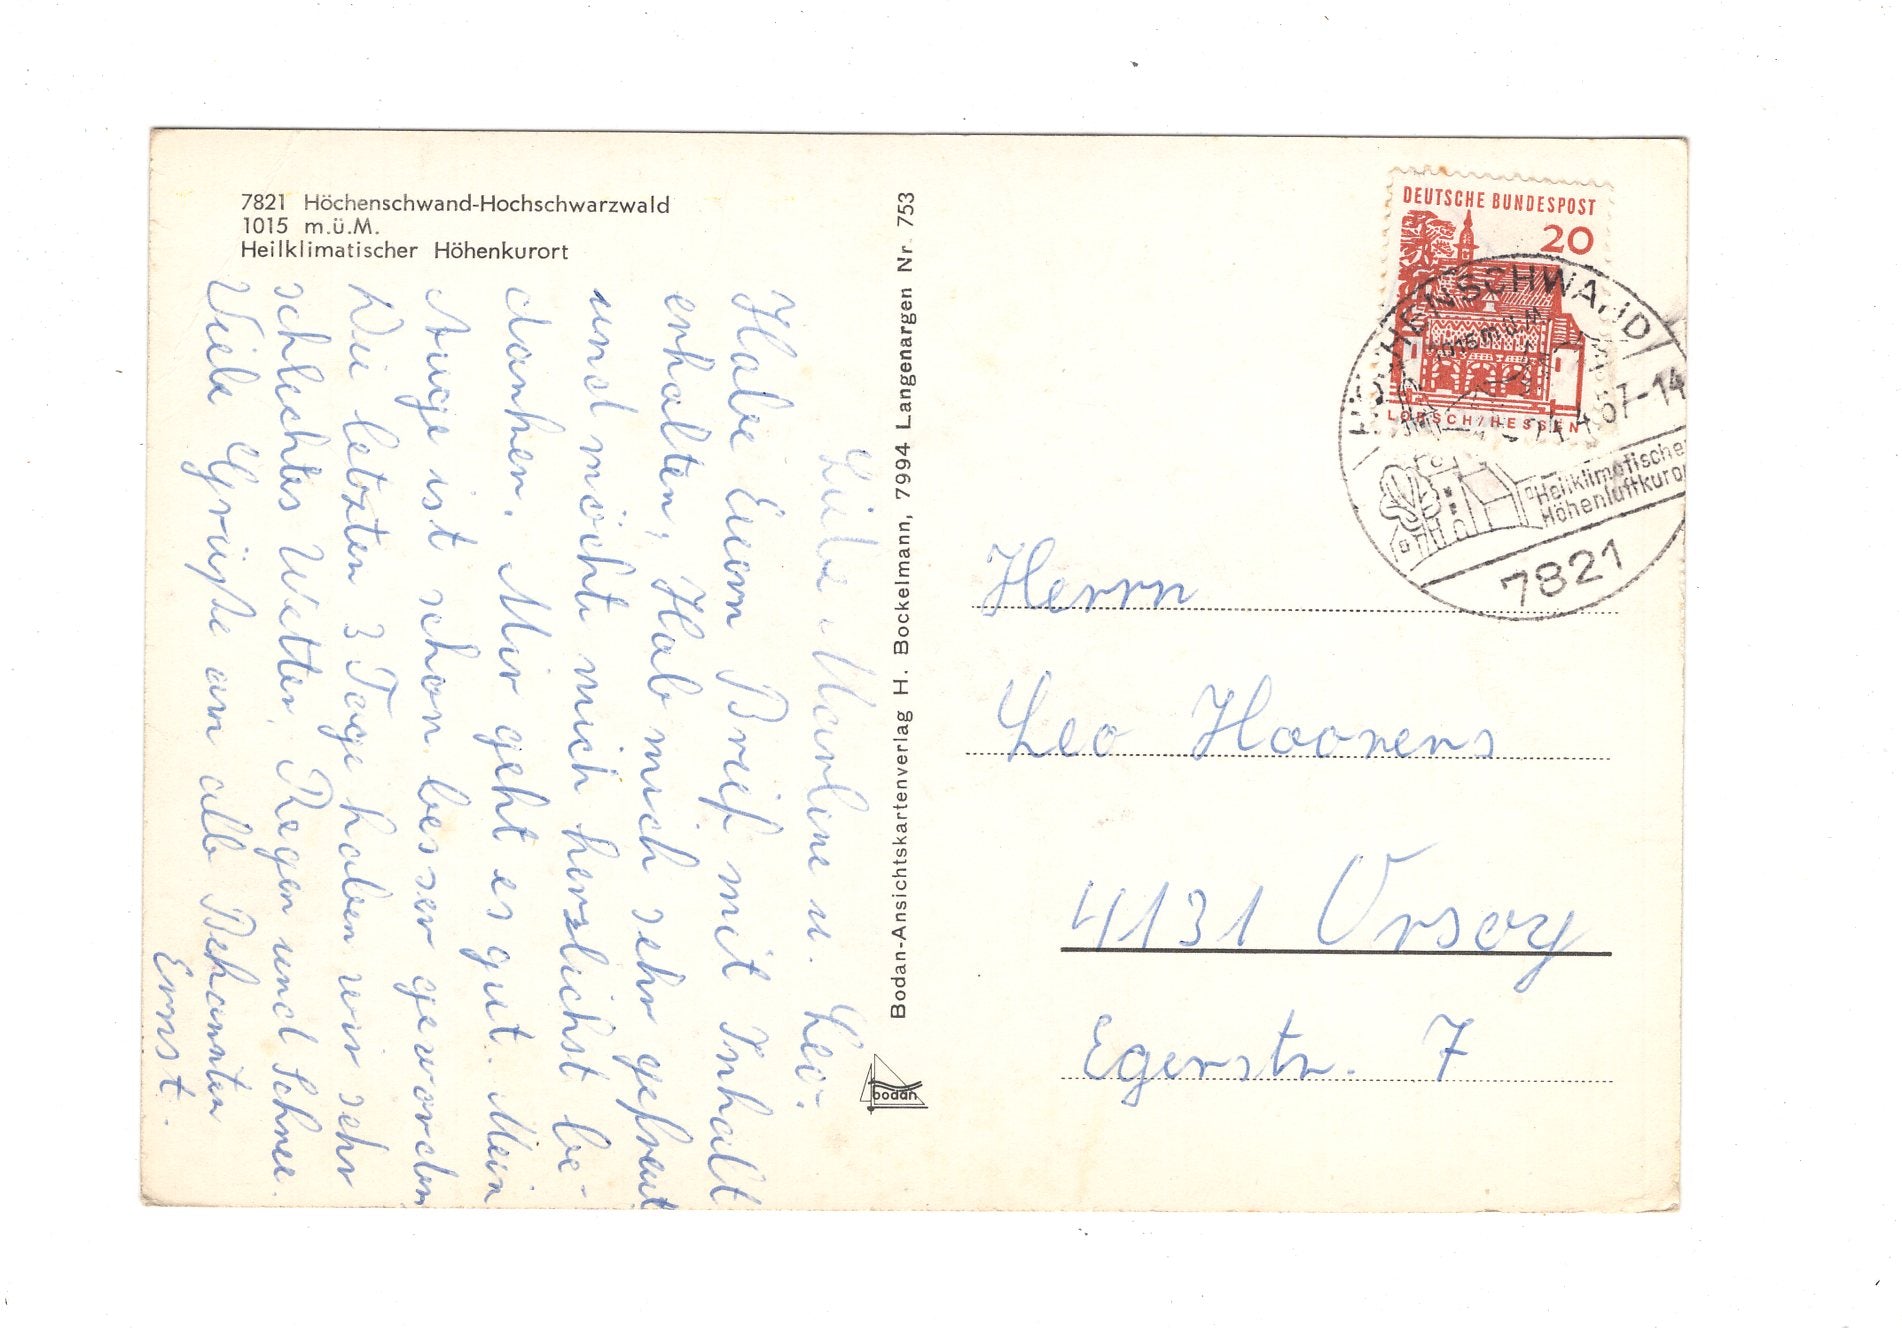 7821 Höchenschwand-Hochschwarzwald
1015 m.ü.M.
Heilklimatischer Höhenkurort
Liebe Marlene u. Leo.
Habe Euern Brief mit Inhalt
erhalten, Hab mich sehr gefreut
und möchte mich herzlichst be-
danken. Mir geht es gut. Mein
Auge ist schon besser geworden
Die letzten 3 Tage haben wir sehr
schlechtes Wetter, Regen und Schnee.
Viele Grüße an alle Bekannten
Ernst.
Bodan-Ansichtskartenverlag H. Bockelmann, 7994 Langenargen Nr. 753
bodan
DEUTSCHE BUNDESPOST
20
LORSCH/HESSEN
HÖCHENSCHWAND
1015 m.ü.M.
67-14
Heilklimatischer
Höhenluftkurort
7821
Herrn
Leo Hoorens
4131 Orsoy
Egerstr. 7